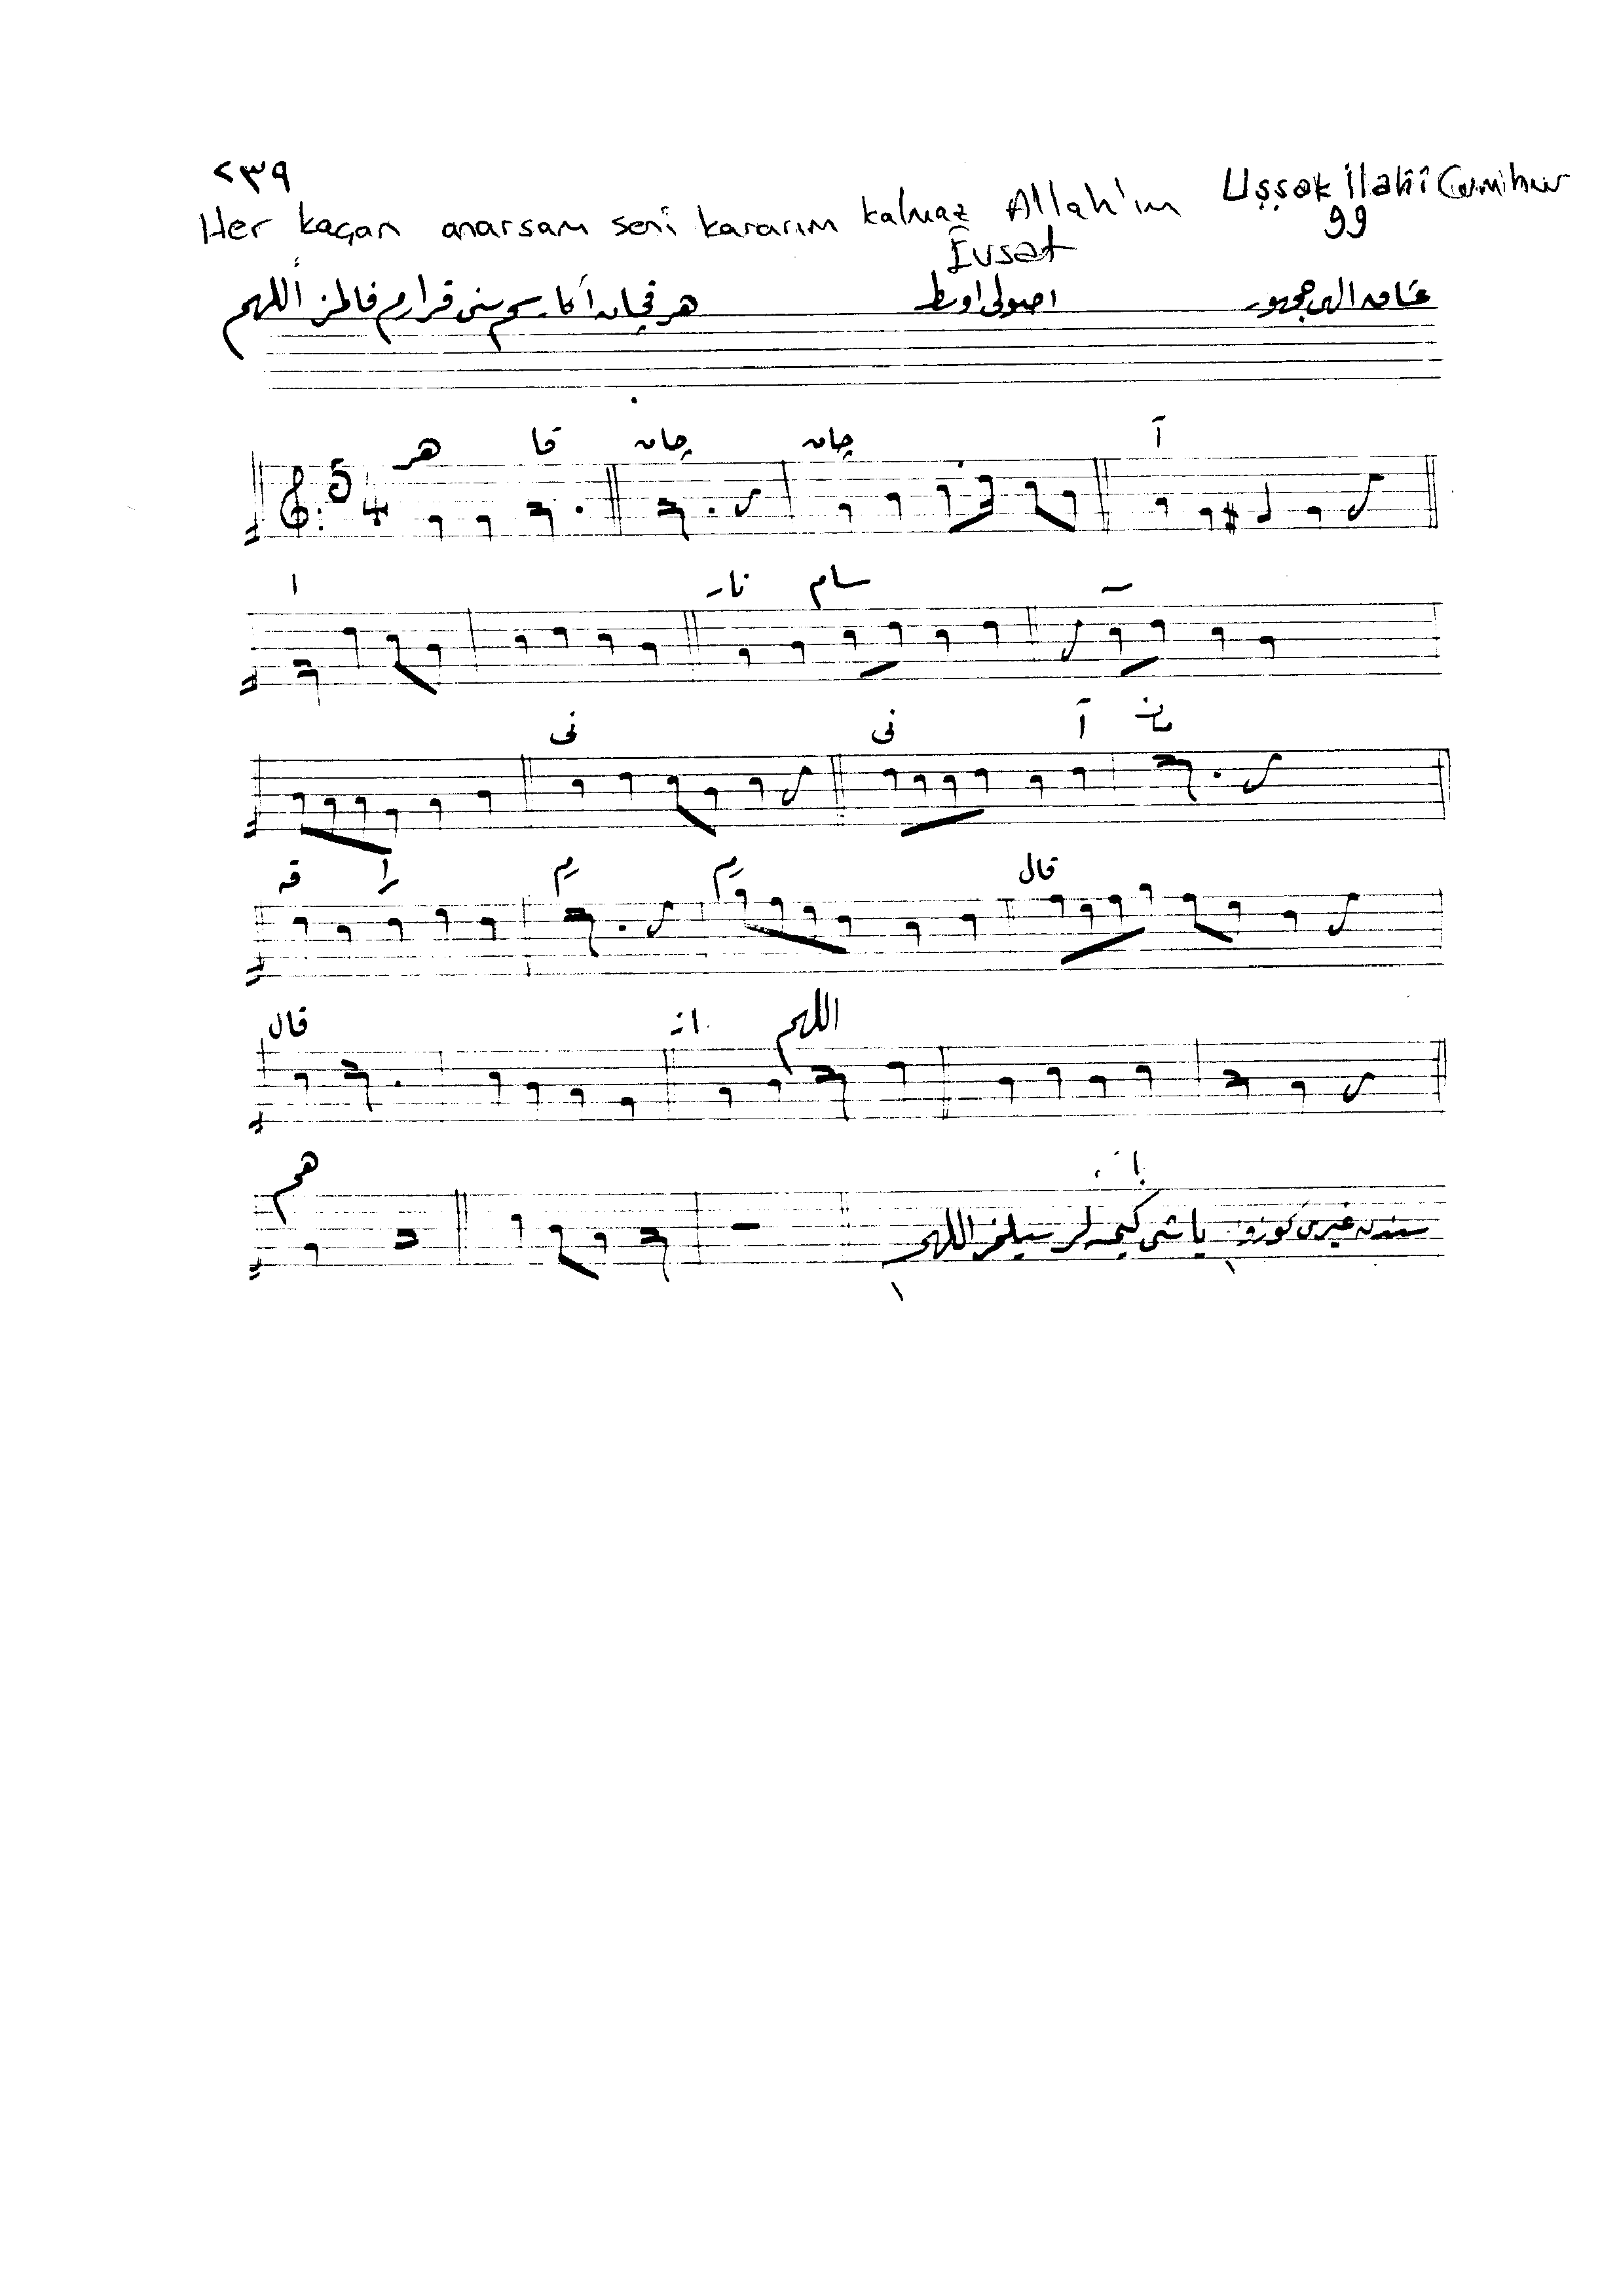 ٢٣٩
Her kaçan anarsam seni kararım kalmaz Allah'ım Uşşak İlahî Cumihur
Evsat 99
عشاقه الهى جمهور اصولى اوسط هر قچان آڭارسم سنى قرارم قالمز اللهم
5 4
هر قا چان چان آ
ا نار سام
نى نى آ
قه را رم رم قال
قال اللهم
هم
سندن غيرى كوزو ياشى كيمه لر سيلمز اللهم